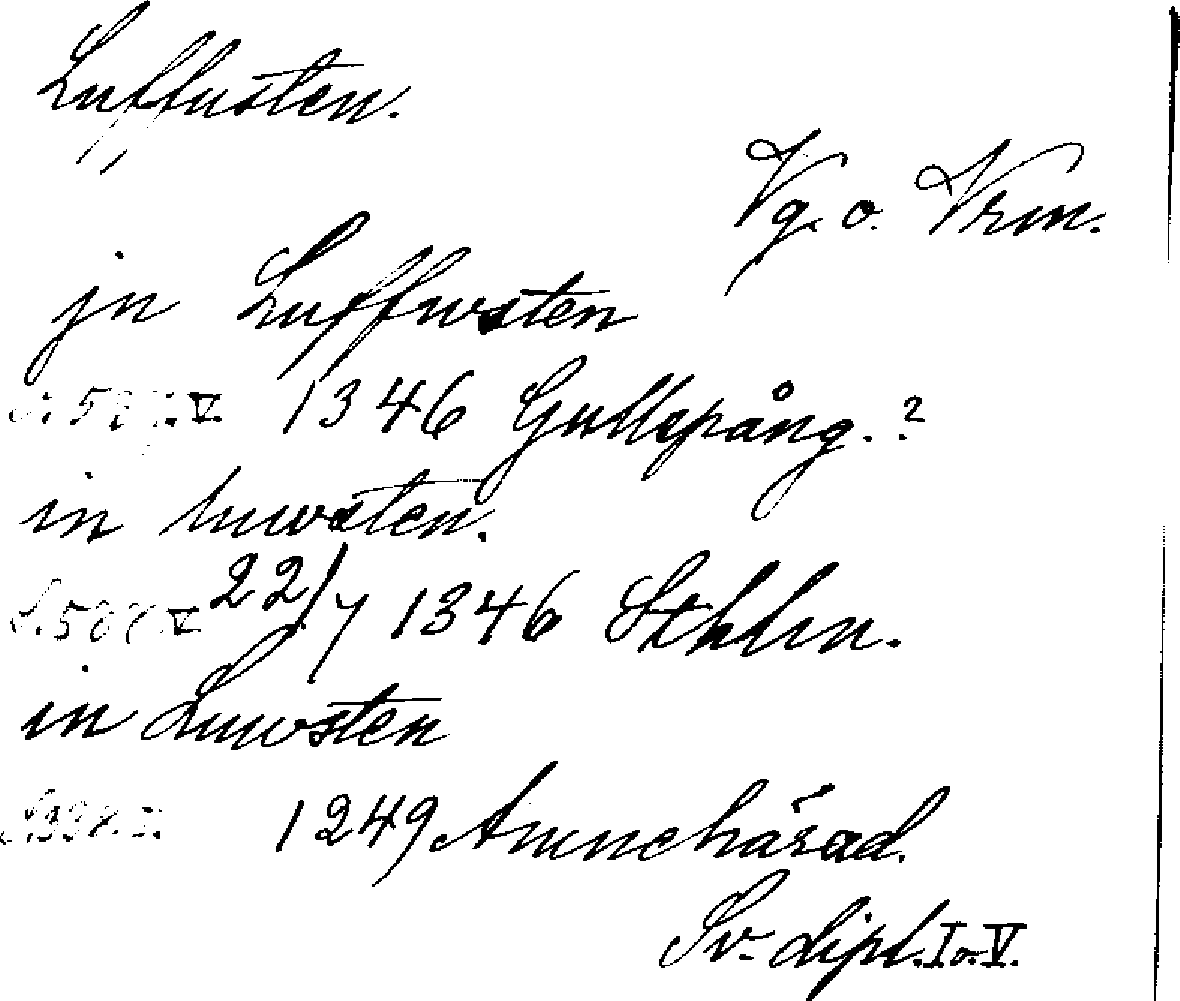 Luffusten.
Vg. o. Vrm.
jn Luffwsten
1346 Gullspång.?
in Luwsten.
22/7 1346 Sthlm.
in Luwsten
1249 Amnehärad.
Sv. dipl. I o. V.